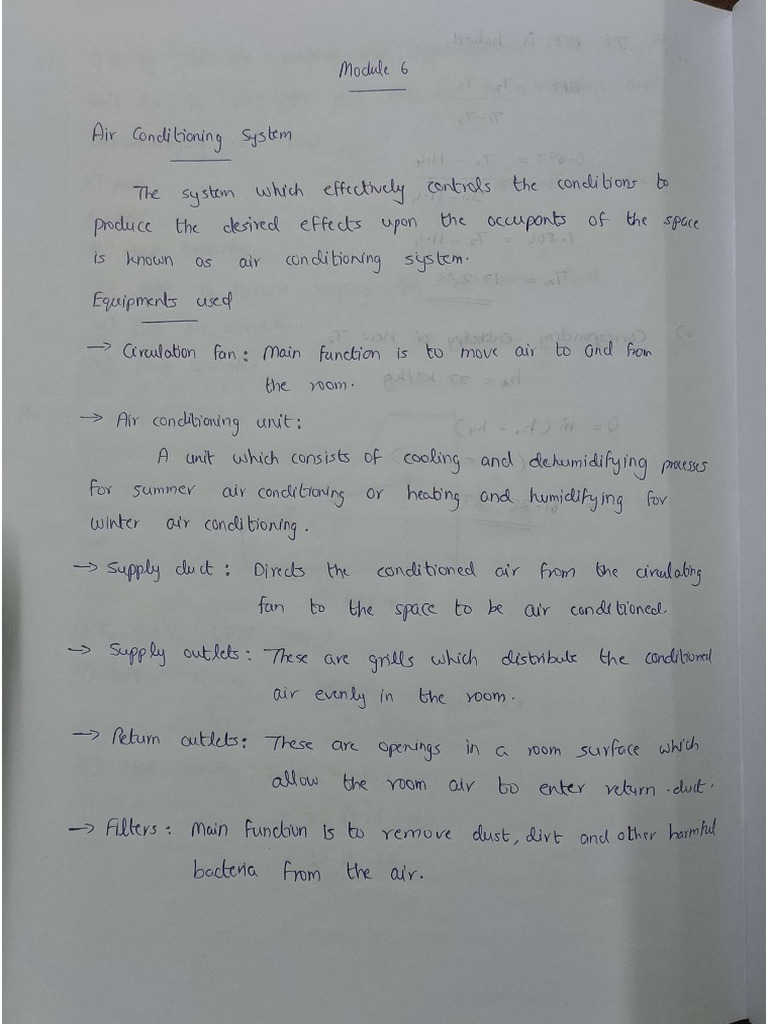 Module 6
Air Conditioning System
The system which effectively controls the conditions to
produce the desired effects upon the occupants of the space
is known as air conditioning system.
Equipments used
→ Circulation fan: Main function is to move air to and from
the room.
→ Air conditioning unit:
A unit which consists of cooling and dehumidifying processes
for summer air conditioning or heating and humidifying for
winter air conditioning.
→ Supply duct: Directs the conditioned air from the circulating
fan to the space to be air conditioned.
→ Supply outlets: These are grills which distribute the conditioned
air evenly in the room.
→ Return outlets: These are openings in a room surface which
allow the room air to enter return duct.
→ Filters: Main function is to remove dust, dirt and other harmful
bacteria from the air.